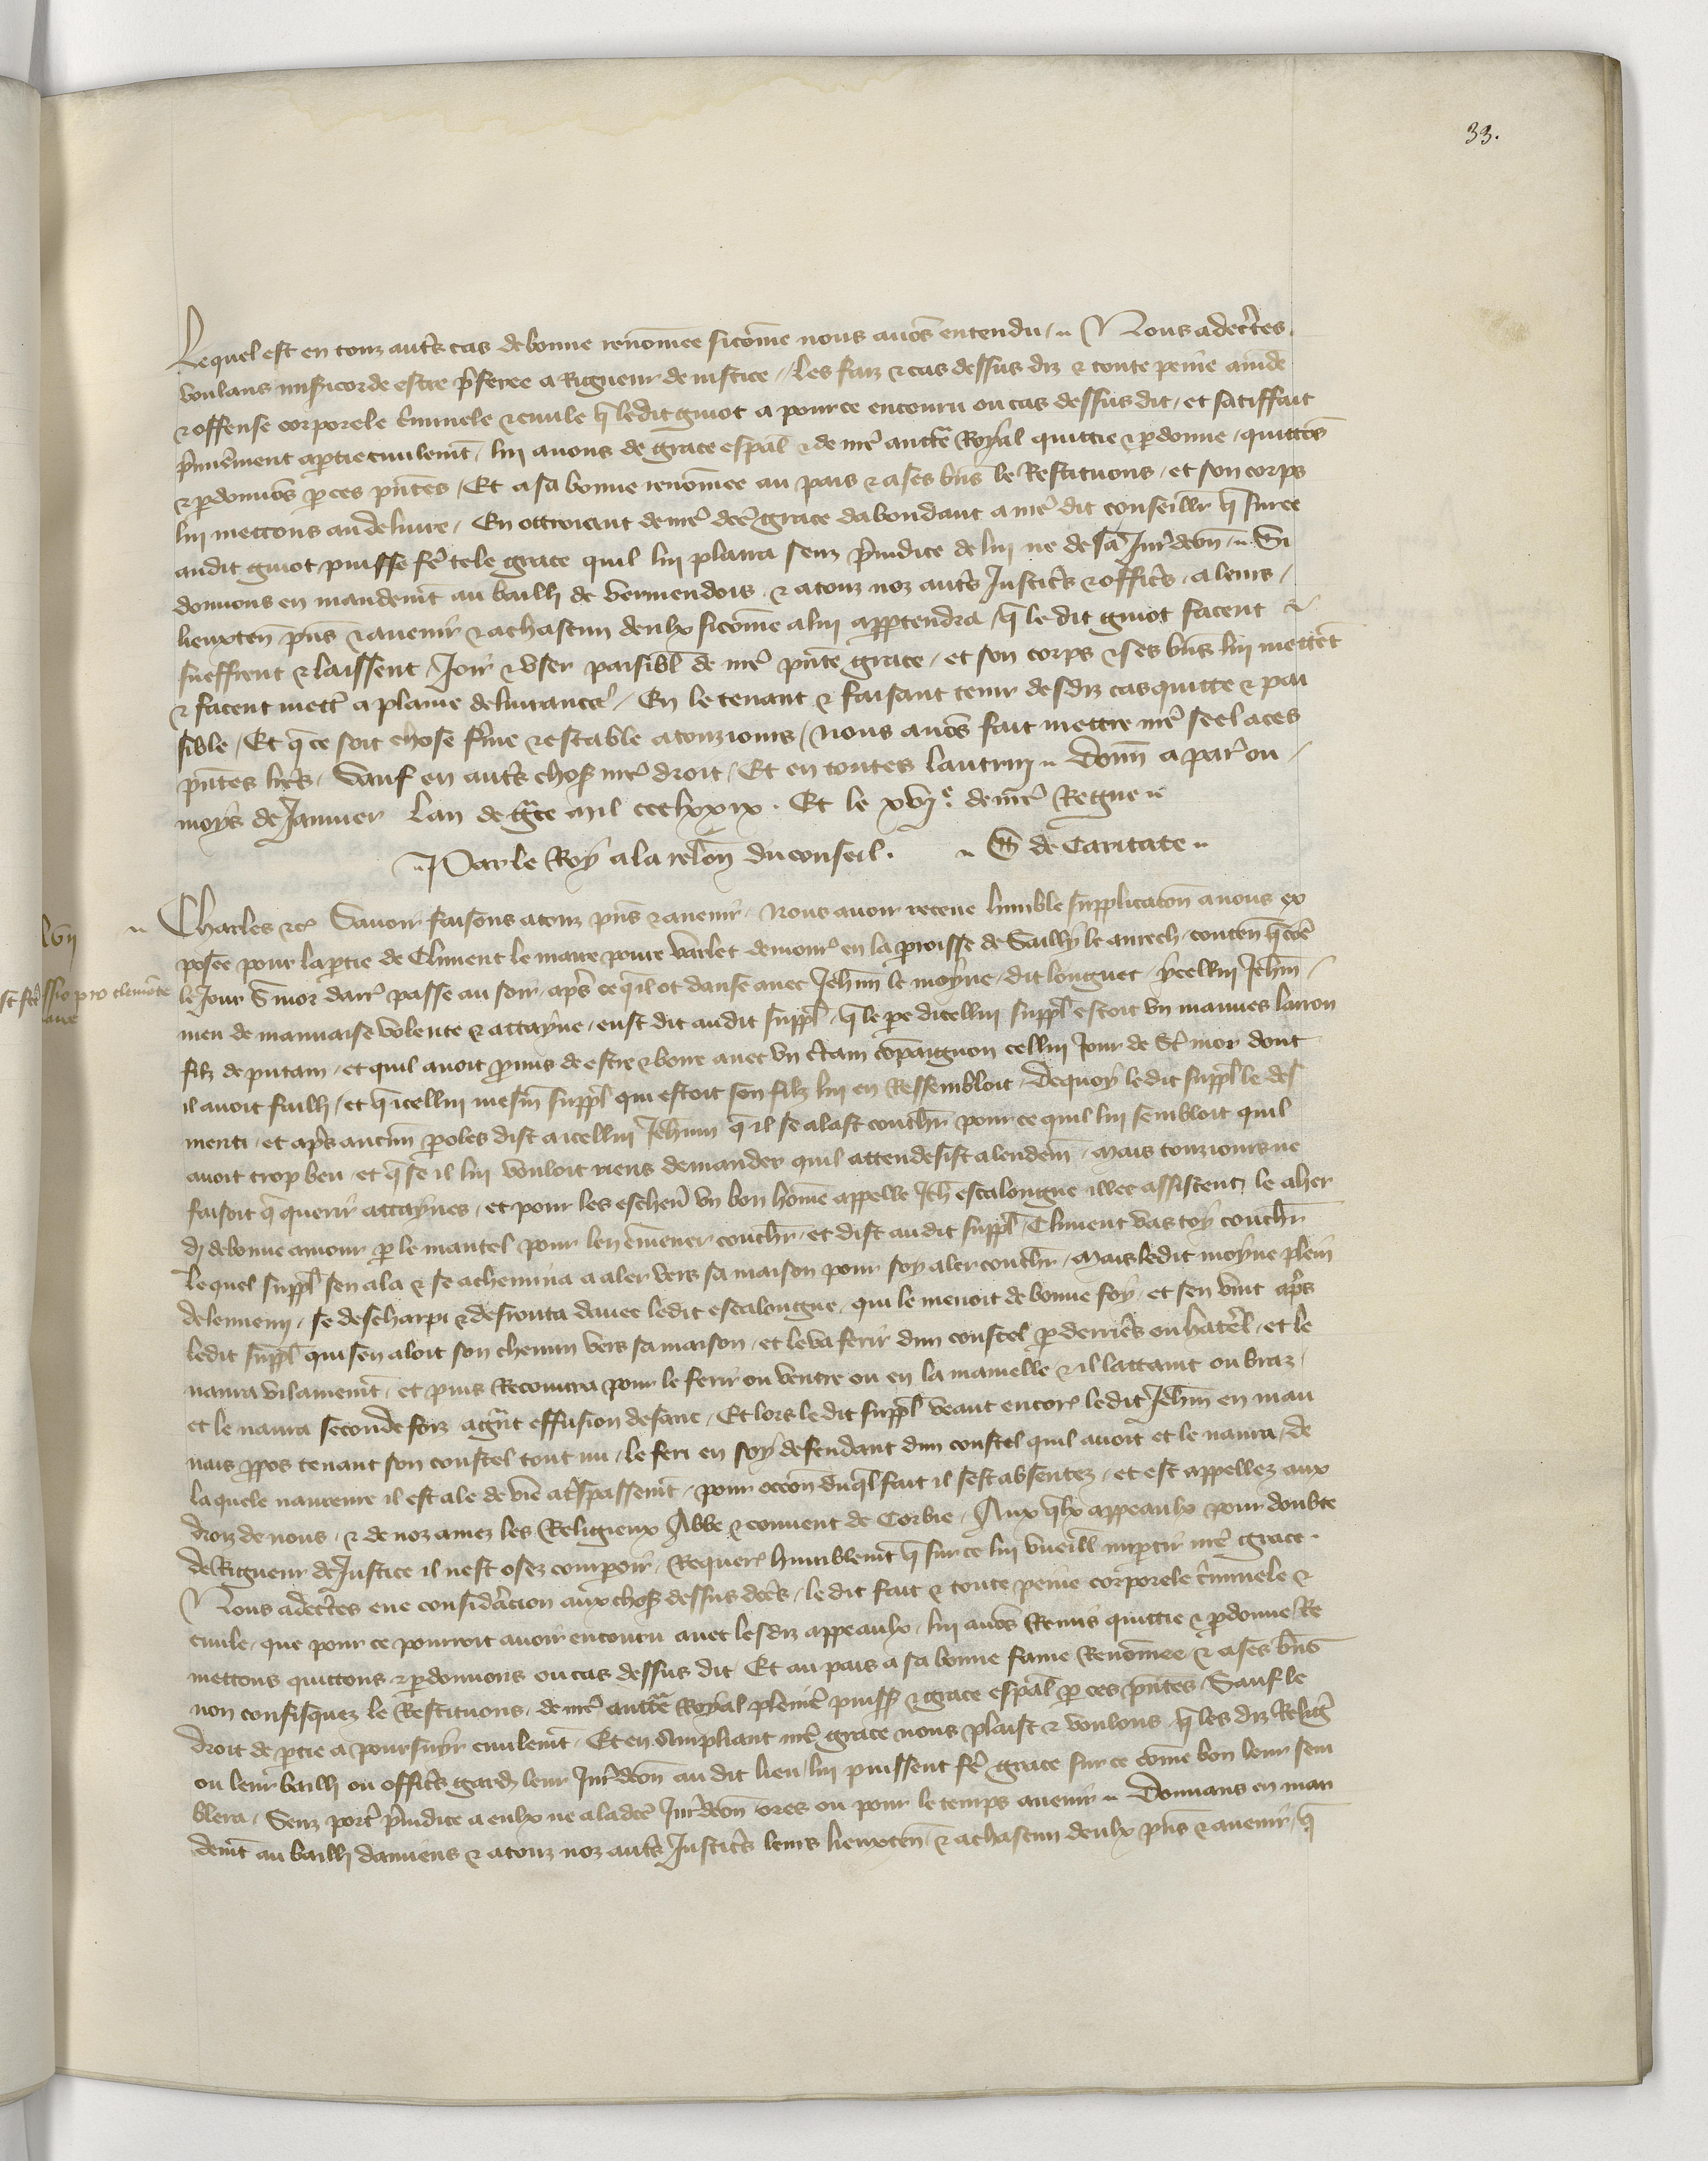 33.
Lequel est en touz aut̃s cas de bonne renom̃ee sicom̃e nous auõs entendu, Nous adec̃tes
voulans miẽicorde estre p̃feree a Rigueur de iustice, Les faiz & cas dessus diz & toute peine am̃de
& offense corporele c̃iminele & ciuile q̃ ledit guiot a pour ce encouru ou cas dessus dit, et satiffait
p̃mierement a ptie ciuilem̃t, lui auons de grace esp̃al & de nr̃e auct̃e Royal quittie & pdonne, quittõs
& pdonnõs p ces p̃ntes, Et a sa bonne renom̃ee au pais & a ses biñs le Restituons, et son corps
lui mettons au deliure, En ottroiant de nr̃e dc̃e grace dabondant a nr̃e dit conseillr̃ q̃ sur ce
audit guiot puisse fẽ tele grace quil lui plaira senz p̃iudice de lui ne de sa Iur̃dcõn, Si
donnons en mandem̃t au bailli de vermendois, & a touz noz aut̃s Iustic̃s & offic̃s, a leurs
lieuxteñ p̃ns & auenir & a chascun deulx sicom̃e a lui apptendra, q̃ le dit guiot facent
sueffrent & laissent Ioir & vser paisibl̃ de nr̃e p̃nte grace, et son corps & ses biñs lui mettẽt
& facent mett̃ a plaine deliurance, En le tenant & faisant tenir desdiz cas quitte & pai
sible, Et q̃ ce soit chose f̃me & estable a touziours, Nous auõs fait mettre nr̃e seel a ces
p̃ntes lr̃es, Sauf en aut̃s choẽ nr̃e droit, Et en toutes lautruy, Donñ a par̃ ou
moys de Ianuier Lan de gr̃ce mil ccclxxix. Et le xvi.e de nr̃e Regne
Par le Roy a la relõn du conseil. de Caritate
lvii
Charles &c̃ Sauoir faisons a touz p̃ns & auenir, Nous auoir receue humble supplicatoñ a nous ex
posee pour la ptie de Climent le maire poure varlet demour̃ en la proisse de Sailly le aurech, conteñ q̃ cõe
ssio pro clemẽte
le Iour S mor darr̃ passe au soir, ap̃s ce q̃ il ot danse auec Ieh̃n le moyne, dit longuet, ycellui Ieh̃n
meu de mauuaise volente & attayne, eust dit audit suppl̃, q̃ le pe dicellui suppl̃ estoit vn mauues larron
filz de putain, et quil auoit p̃mis de estre & boire auec vn c̃tain cõpaignon cellui Iour de S mor dont
il auoit failli, et q̃ icellui mesm̃ suppl̃ qui estoit son filz lui en Ressembloit, De quoy ledit suppl̃ le des
menti, et ap̃s aucuñ poles dist a icellui Iehan q̃ il se alast couchr̃ pour ce quil lui sembloit quil
auoit trop beu, et q̃ se il lui vouloit riens demander quil attendesist a lendem̃, mais touziours ne
faisoit q̃ querir attaynes, et pour les escheũ vn bon hom̃e appelle Ieh̃ escalongne illec assistent le aher
dy de bonne amour p le mantel pour len em̃ener couchr̃, et dist audit suppl̃, Climent vas toy couchr̃
Lequel suppl̃ sen ala & se achemina a aler vers sa maison pour soy aler couchr̃, mais ledit moyne plein
de lennemi, se descharpi & desrouta dauec ledit escalongne, qui le menoit de bonne foy, et sen vint ap̃s
ledit suppl̃ qui sen aloit son chemin vers sa maison, et le va ferir dun coustel p derriẽs ou hater̃l, et le
naura vilainem̃t, et puis Recouura pour le ferir ou ventre ou en la mamelle & il lattaint ou braz
et le naura seconde foiz a gr̃nt effusion de sanc, Et lors ledit suppl̃ veant encor̃ ledit Ieh̃n en mau
uais ppos tenant son coustel tout nu, le feri en soy defendant dun coustel quil auoit et le naura, de
laquele naureure il est ale de vie a t̃spassem̃t, pour occõn duq̃l fait il sest absentez, et est appellez aux
droiz de nous, & de noz amez les Religieux Abbe & conuent de Corbie, Aux q̃lx appeaulx pour doubte
de Rigueur de Iustice il nest osez compoir, Requer̃ humblem̃t q̃ sur ce lui vueill̃ impartir nr̃e grace.
Nous adec̃tes eue consid̃acion aux choẽ dessus dc̃es, le dit fait & toute peine corporele c̃iminele &
ciuile, que pour ce pourroit auoir encouru auec lesdiz appeaulx, lui auõs Remis quittie & pdonne Re
mettons quittons & pdonnons ou cas dessus dit Et au pais a sa bonne fame Renom̃ee & a ses biñs
non confisquez le Restituons, de nr̃e auct̃e Royal pleniẽ puiss̃ & grace esp̃al p ces p̃ntes, Sauf le
droit de ptie a poursuyr ciuilem̃t, Et en Ampliant nr̃e grace nous plaist & voulons q̃ les diz Relig̃
ou leur bailli ou offic̃s gard̃ leur Iur̃dcõn audit lieu lui puissent fẽ grace sur ce com̃e bon leur sem
blera, Senz port̃ p̃iudice a eulx ne a ladc̃e Iur̃dcõn ores ou pour le temps auenir, Donnans en man
dem̃t au bailli damiens & a touz noz aut̃s Iustic̃s leurs lieuxteñ & a chascun deulx p̃ns & auenir, q̃